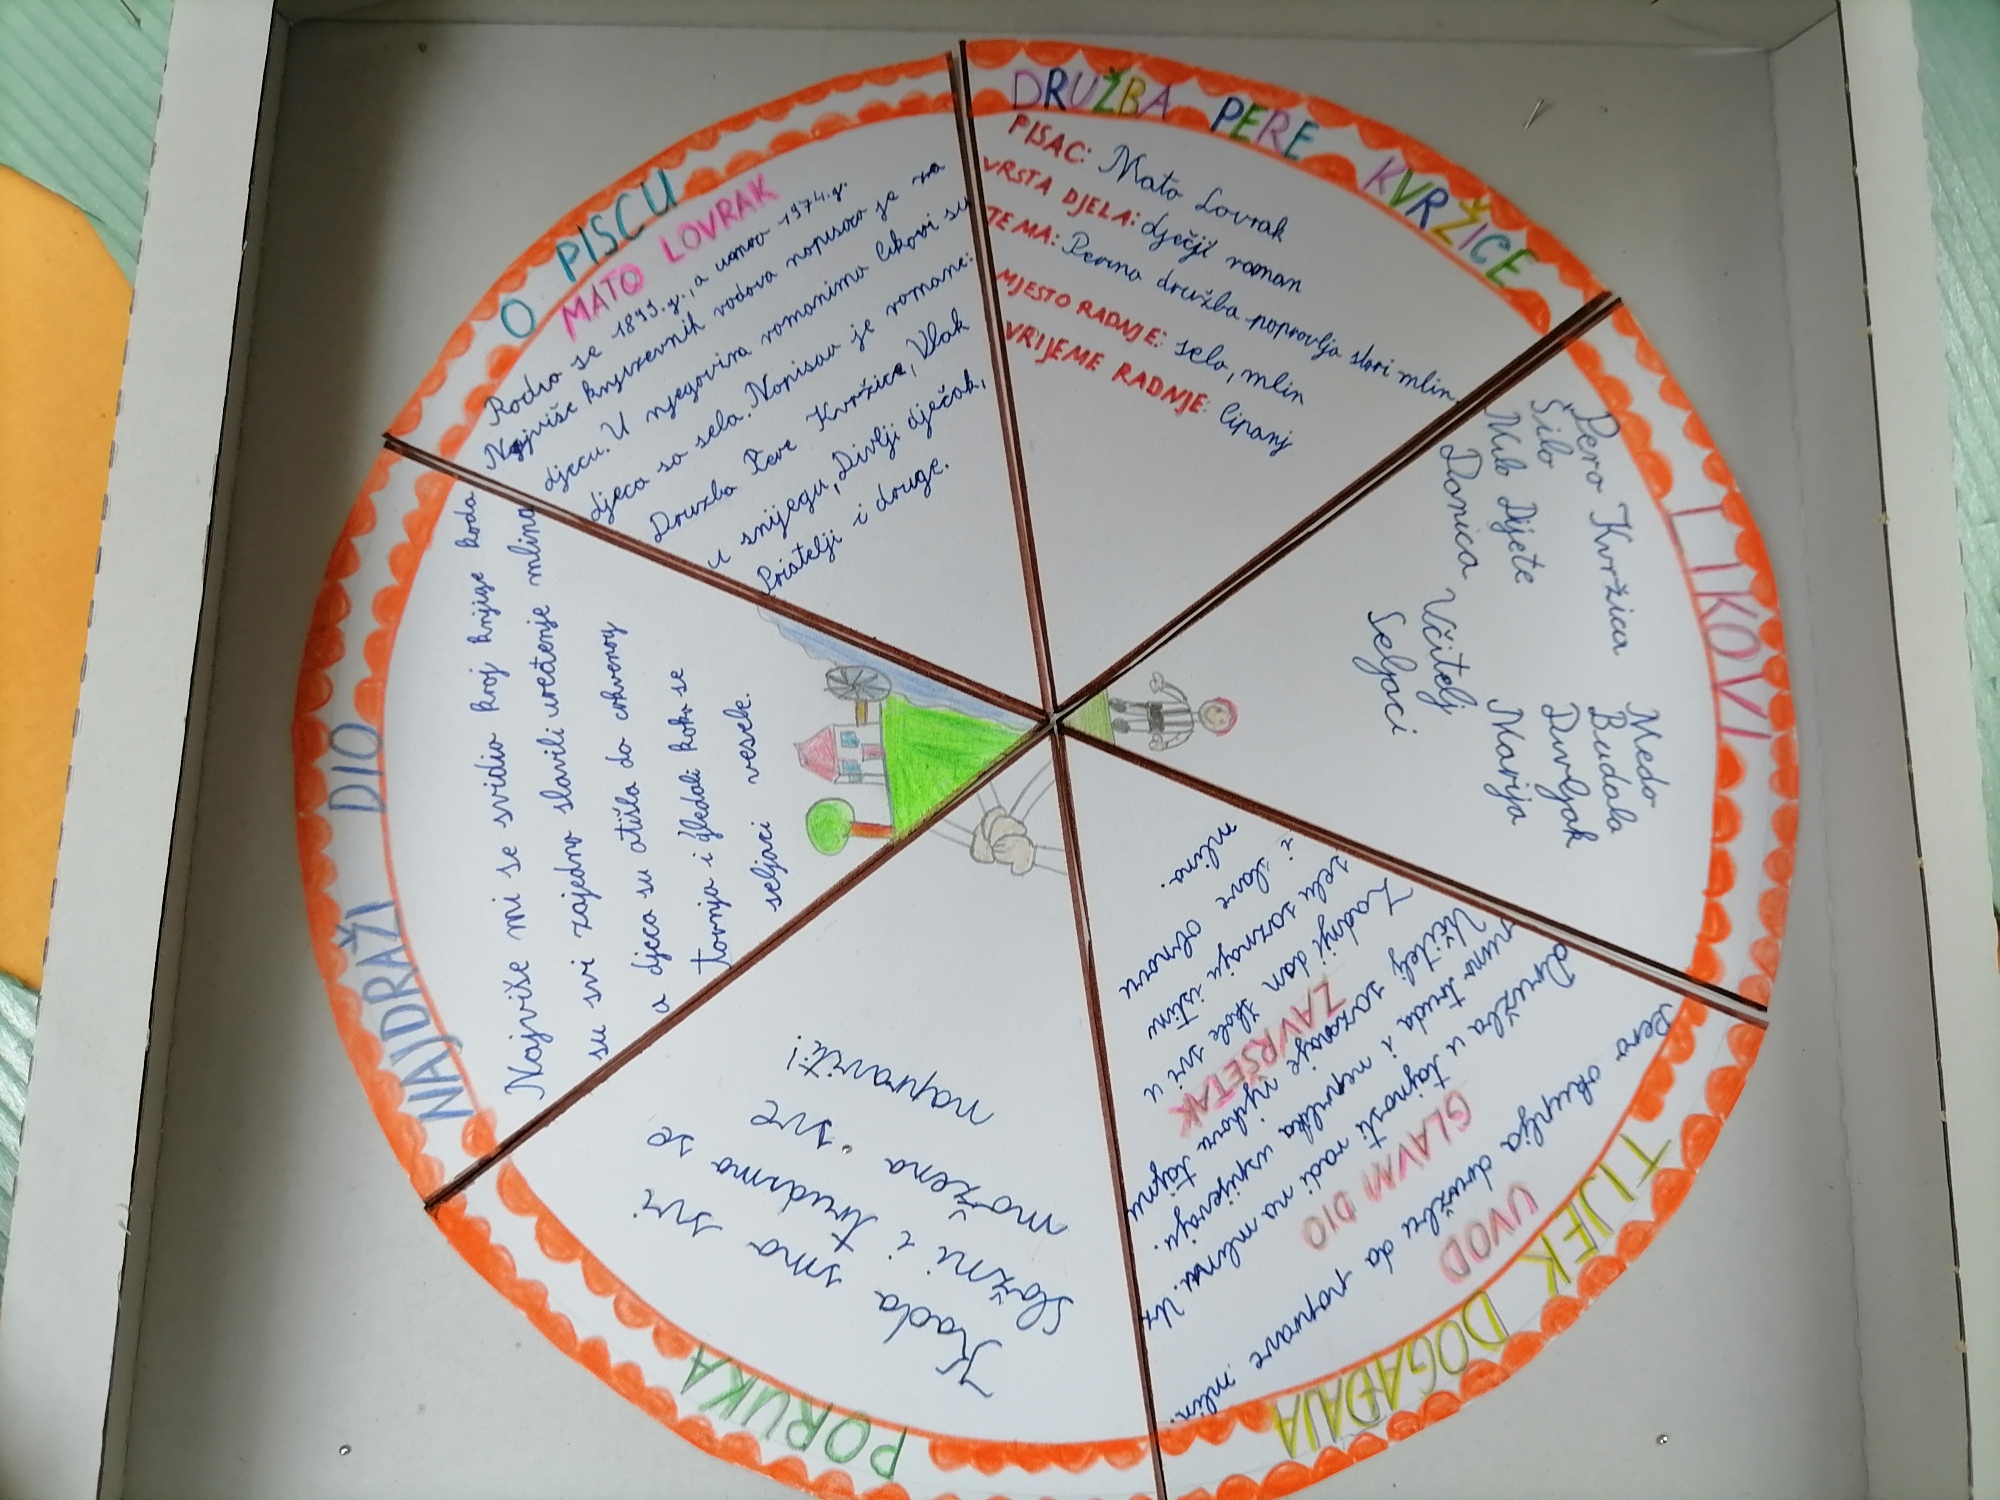 DRUŽBA PERE KVRŽICE
PISAC: Mato Lovrak
VRSTA DJELA: dječji roman
TEMA: Perina družba popravlja stari mlin.
MJESTO RADNJE: selo, mlin
VRIJEME RADNJE: lipanj
LIKOVI
Pero Kvržica Medo
Šilo Budala
Milo Dijete Divljak
Danica Učitelj Marija
Seljaci
TIJEK DOGAĐAJA
Pero okuplja družbu da naprave mlin.
UVOD
Družba u tajnosti radi na mlinu. Uz
puno truda i neprilika uspijevaju.
GLAVNI DIO
Učitelj saznaje njihovu tajnu
Zadnji dan škole svi u
selu saznaju istinu
i slave obnovu
mlina.
ZAVRŠETAK
PORUKA
Kada smo svi
složni i trudimo se
možemo sve
napraviti!
NAJDRAŽI DIO
Najviše mi se svidio kraj knjige kada
su svi zajedno slavili uređenje mlina
a djeca su otišla do crkvenog
tornja i gledali kako se
seljaci vesele.
O PISCU
MATO LOVRAK
Rodio se 1899. g., a umro 1974. g.
Najviše književnih radova napisao je za
djecu. U njegovim romanima likovi su
djeca sa sela. Napisao je romane:
Družba Pere Kvržice, Vlak
u snijegu, Divlji dječak,
Priatelji i druge.